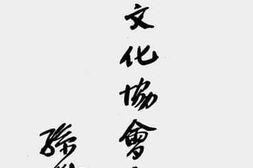 文化協會
孫